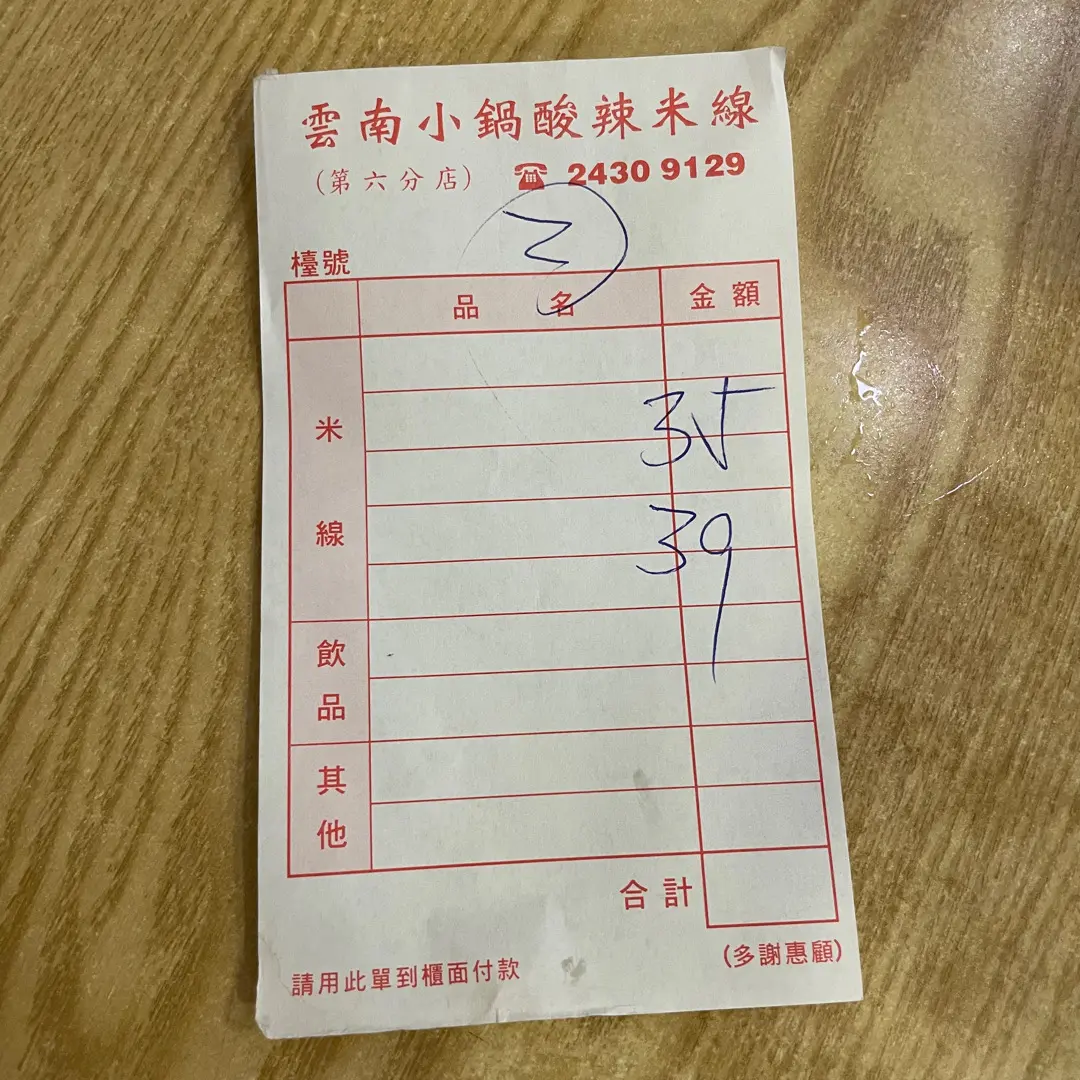 雲南小鍋酸辣米線
(第六分店) ☎ 2430 9129
檯號
品名 金額
米線
35
39
飲品
其他
合計
(多謝惠顧)
請用此單到櫃面付款